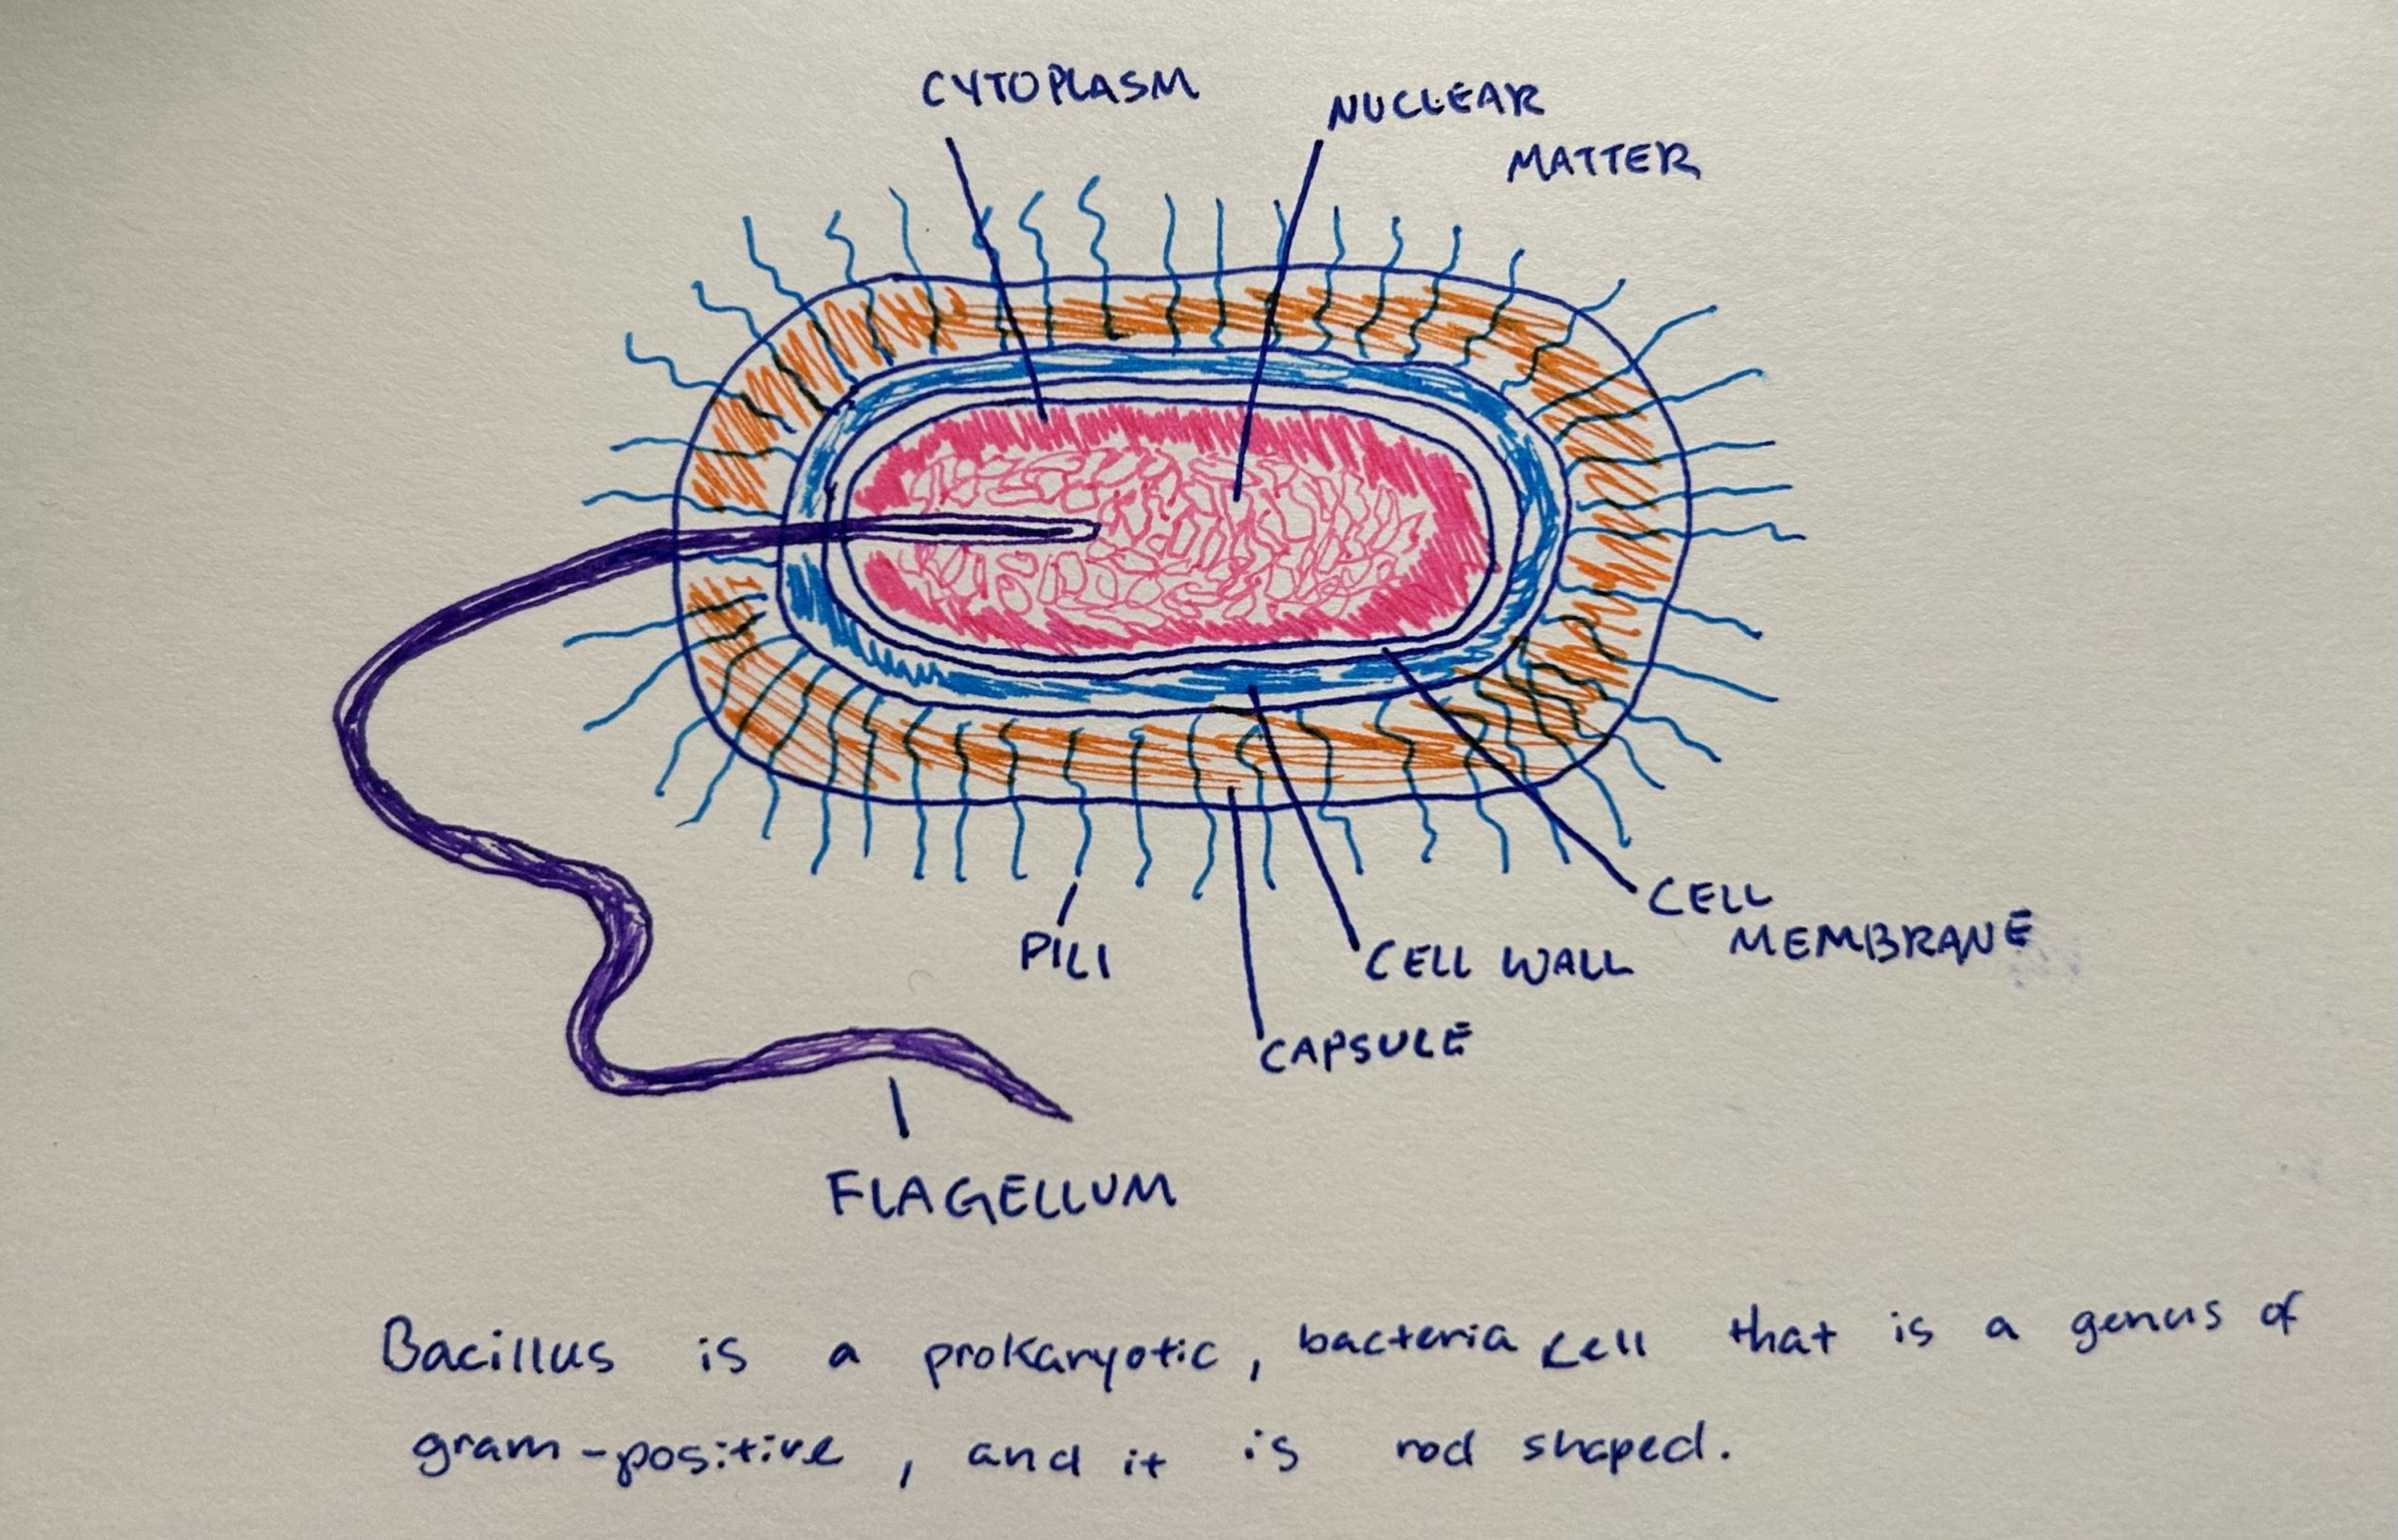 CYTOPLASM
NUCLEAR
MATTER
CELL
MEMBRANE
PILI
CELL WALL
CAPSULE
FLAGELLUM
Bacillus is a prokaryotic, bacteria cell that is a genus of
gram-positive, and it is rod shaped.